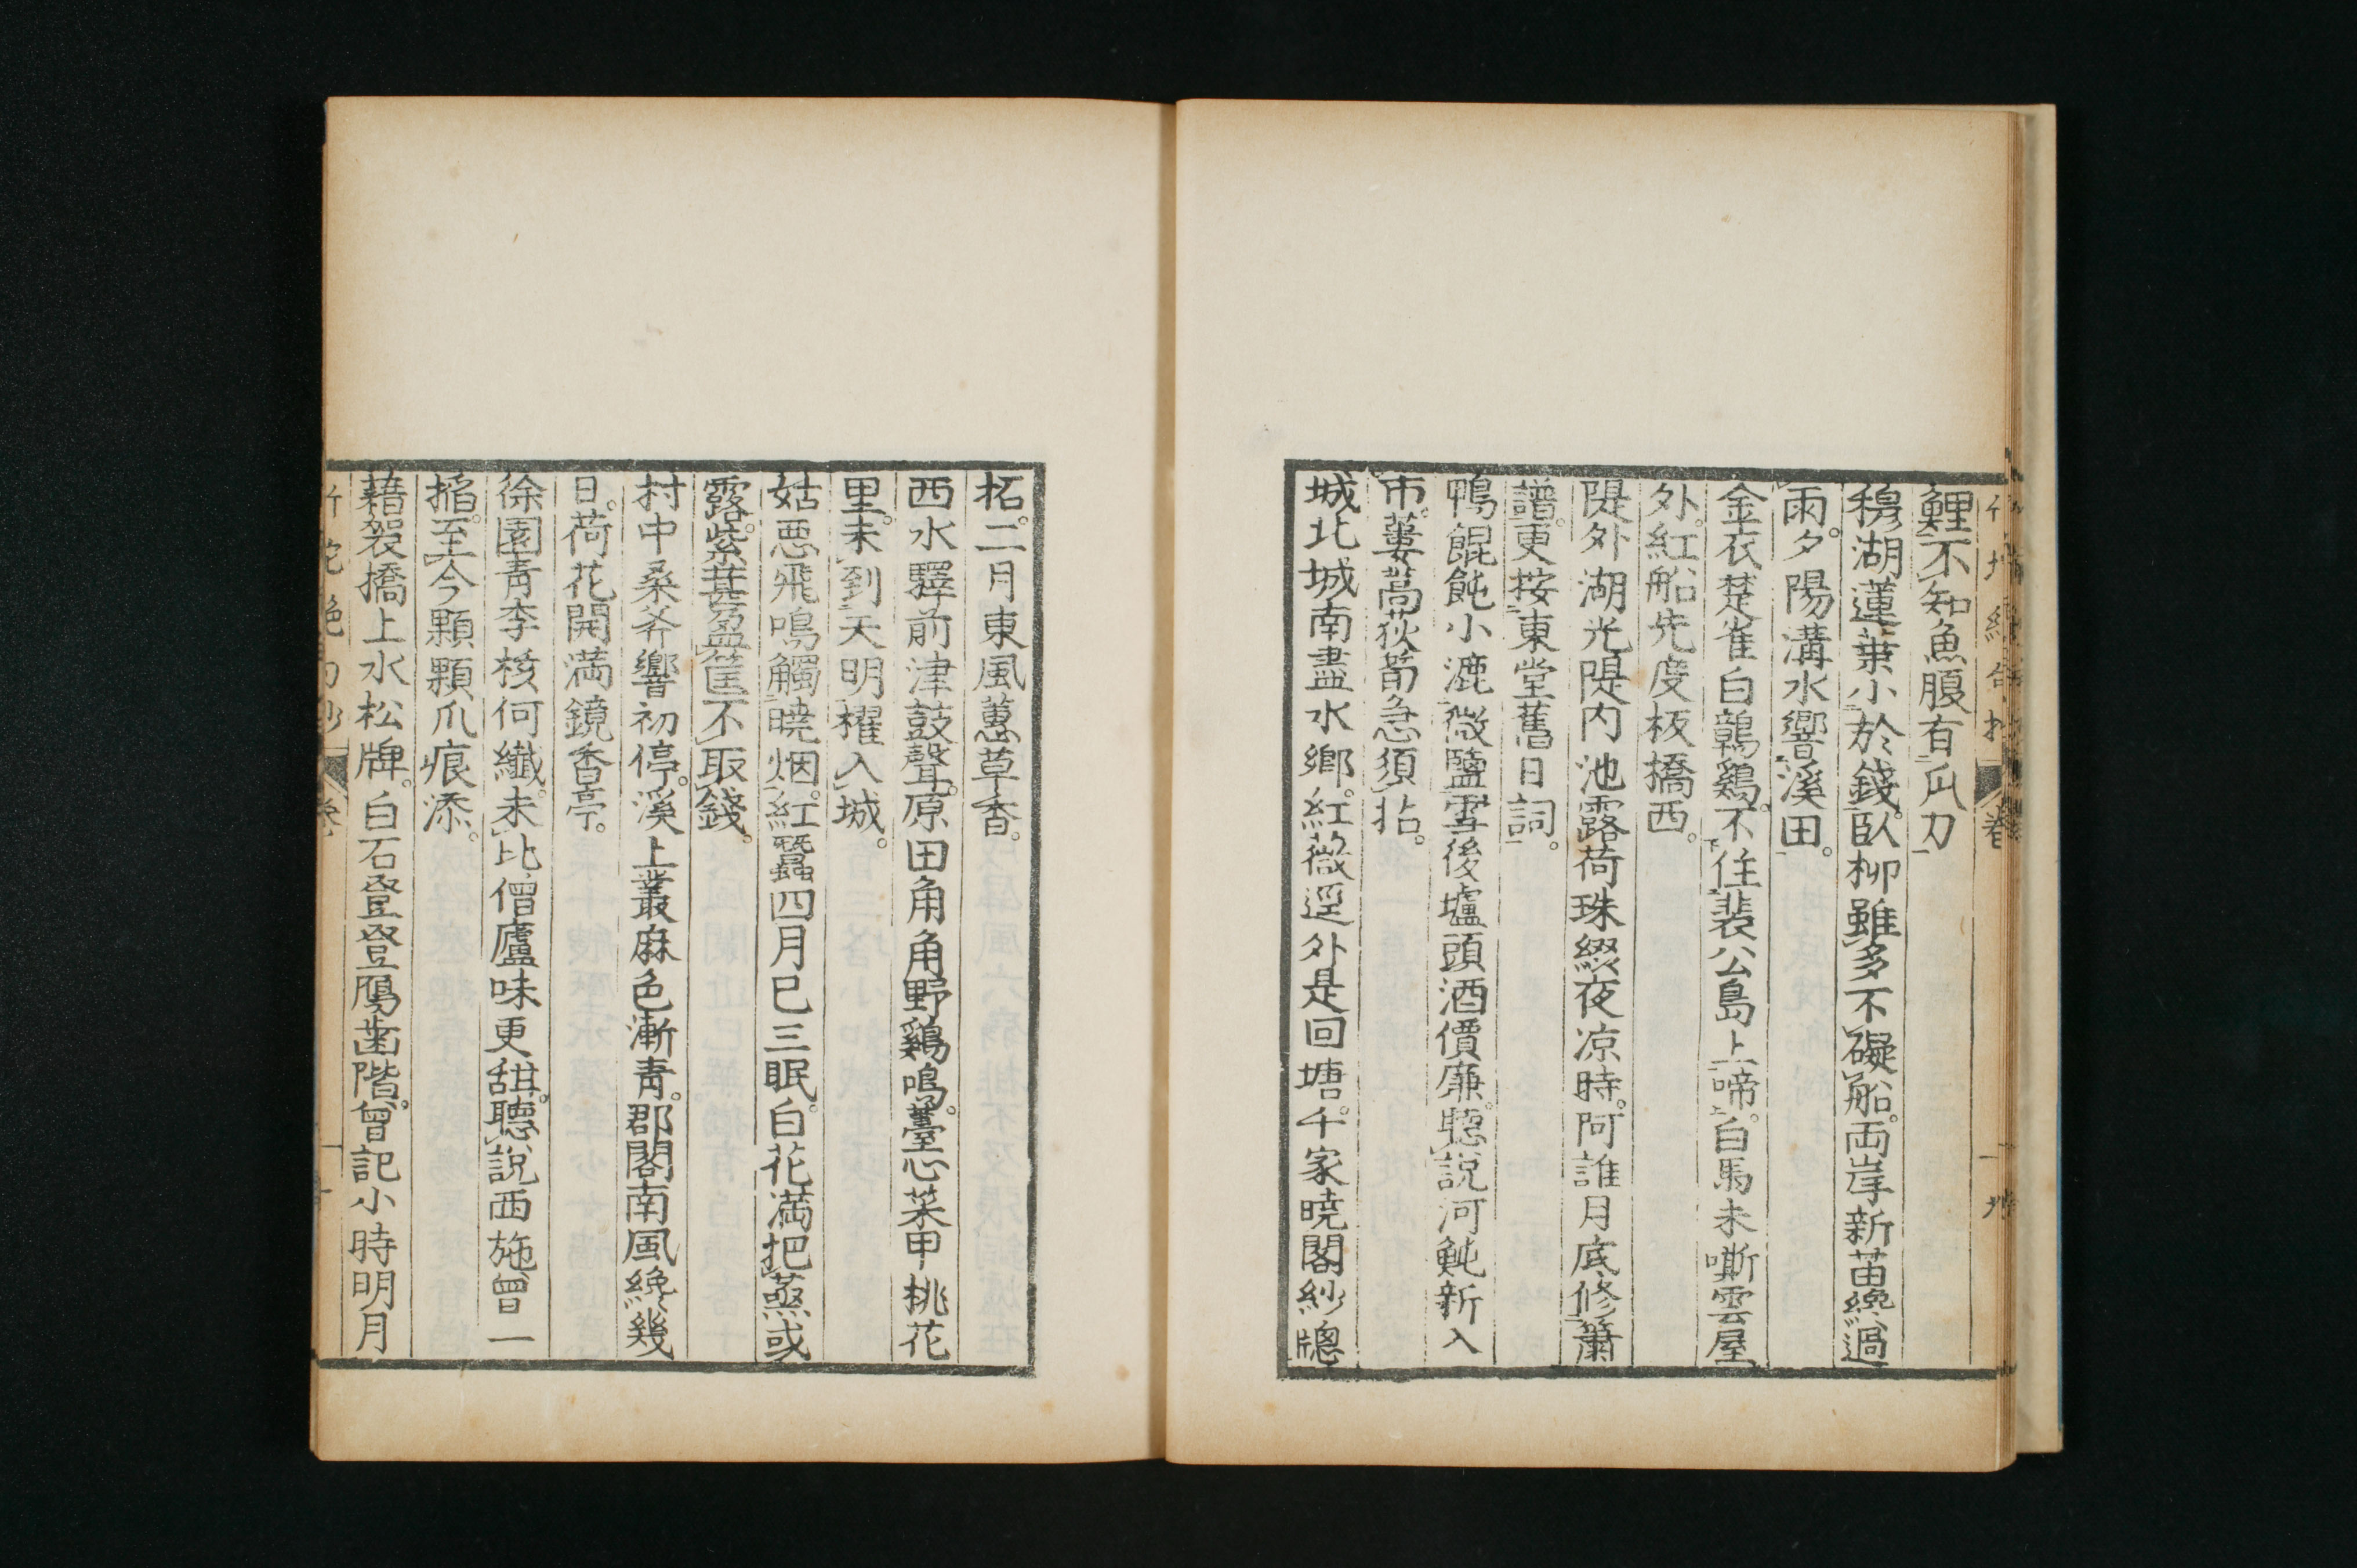 鯉不知魚腹有瓜刀
穆湖蓮葉小於錢。臥柳雖多不礙船。両岸新苗纔過
雨。夕陽溝水響溪田。
金衣楚雀白鷴鷄。不住裴公島上啼。白馬未嘶雲屋
外。紅船先度板橋西。
隄外湖光隄内池。露荷珠綴夜凉時。阿誰月底修簫
譜。更按東堂舊日詞。
鴨餛飩小漉微鹽。雪後壚頭酒價廉。聽說河魨新入
市。蔞蒿荻筍急須拈。
城北城南盡水鄉。紅薇逕外是回塘。千家曉閣紗牕
拓。二月東風蕙草香。
西水驛前津鼓聲。原田角角野鷄鳴。薹心菜甲桃花
里。未到天明櫂入城。
姑惡飛鳴觸曉烟。紅蠶四月已三眠。白花満把蒸成
露。紫葚盈筐不取錢。
村中桑斧響初停。溪上叢麻色漸青。郡閣南風纔幾
日。荷花開満鏡香亭。
徐園青李核何纖。未比僧廬味更甜。聽說西施曽一
掐。至今顆顆爪痕添。
藉袈橋上水松牌。白石登登鴈齒階。曽記小時明月